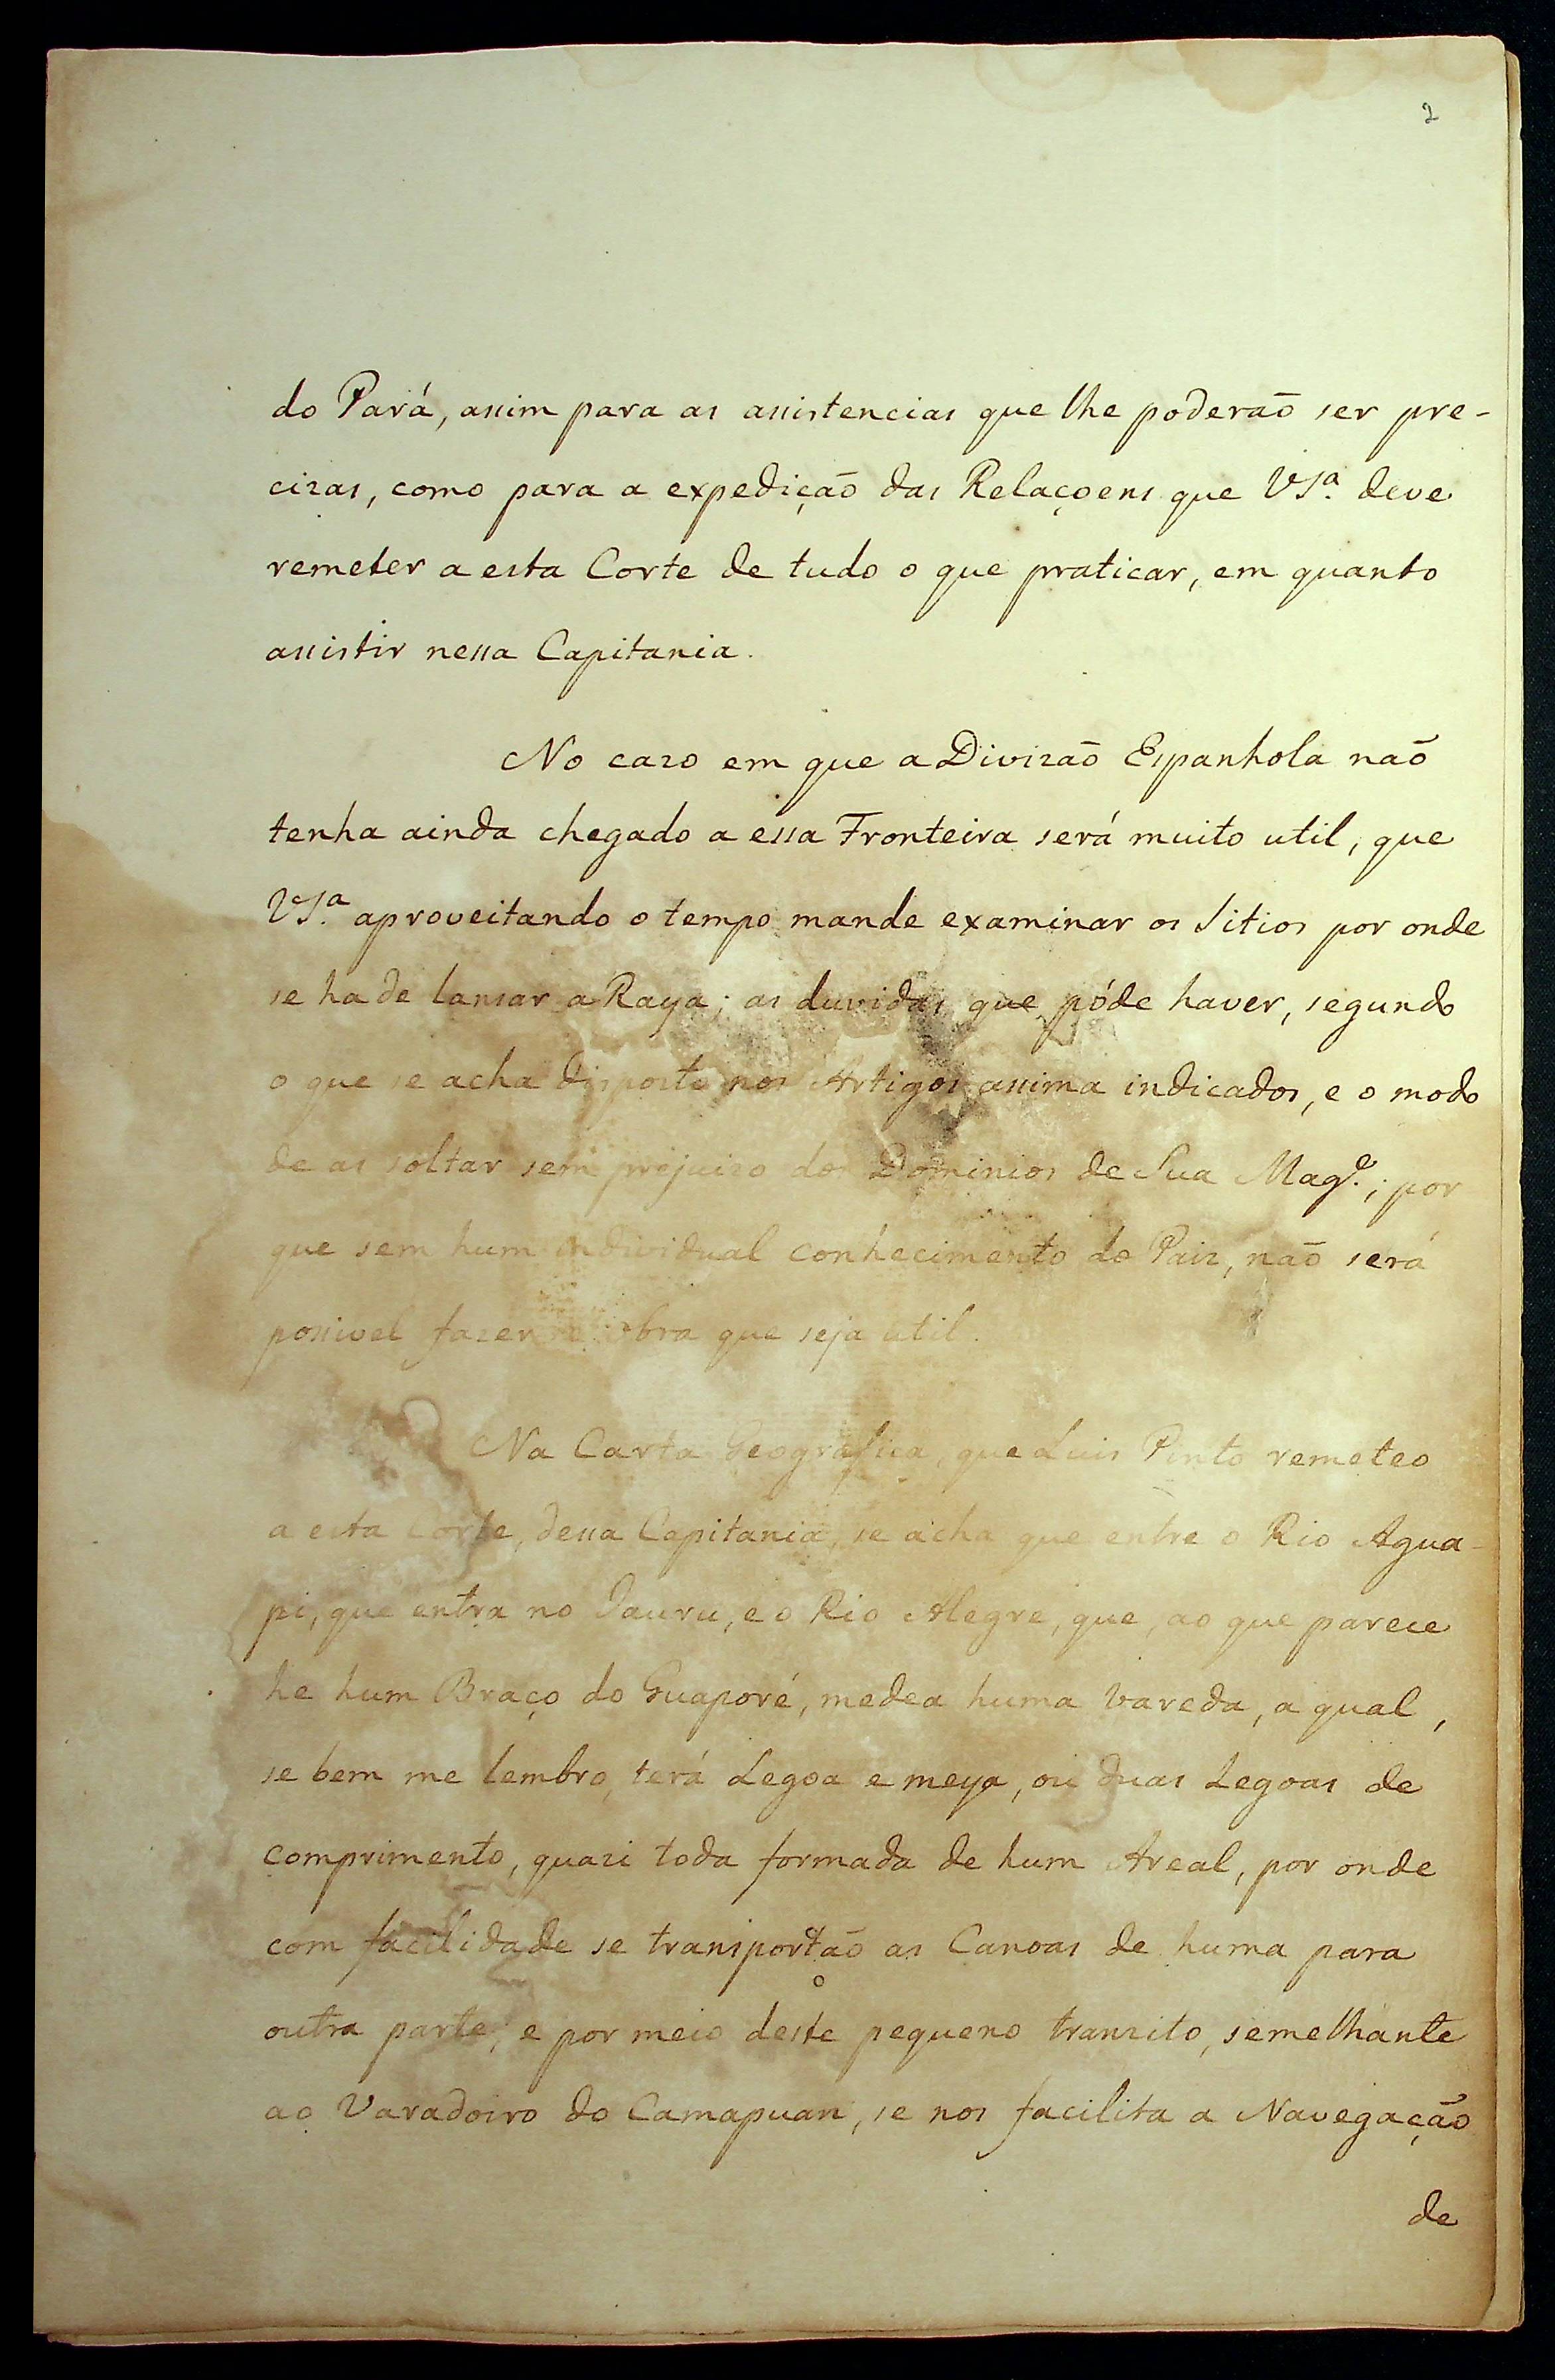 2
do Pará, assim para as assistencias que lhe poderaõ ser pre-
cizas, como para a expediçaõ das Relaçoens que VSª. deve
remeter a esta Corte de tudo o que praticar, em quanto
assistir nessa Capitania.
No cazo em que a Divizaõ Espanhola naõ
tenha ainda chegado a essa Fronteira será muito util, que
VSª. aproveitando o tempo mande examinar os Sitios por onde
se ha de lansar a Raya; as duvidas que póde haver, segundo
o que se acha disposto nos Artigos assima indicados, e o modo
de as soltar sem prejuizo dos Dominios de Sua Magᵉ.; por
que sem hum individual conhecimento do Paiz, naõ será
possivel fazerse obra que seja util.
Na Carta Geografica, que Luis Pinto remeteo
a esta Corte, dessa Capitania, se acha que entre o Rio Agua-
pi, que entra no Jauru, e o Rio Alegre, que, ao que parece
he hum Braço do Guaporé, medea huma vareda, a qual,
se bem me lembro, terá Legoa e meya, ou duas Legoas de
comprimento, quazi toda formada de hum Areal, por onde
com facilidade se transportaõ as Canoas de huma para
outra parte, e por meio deste pequeno tranzito, semelhante
ao Varadoiro do Camapuan, se nos facilita a Navegaçaõ
de